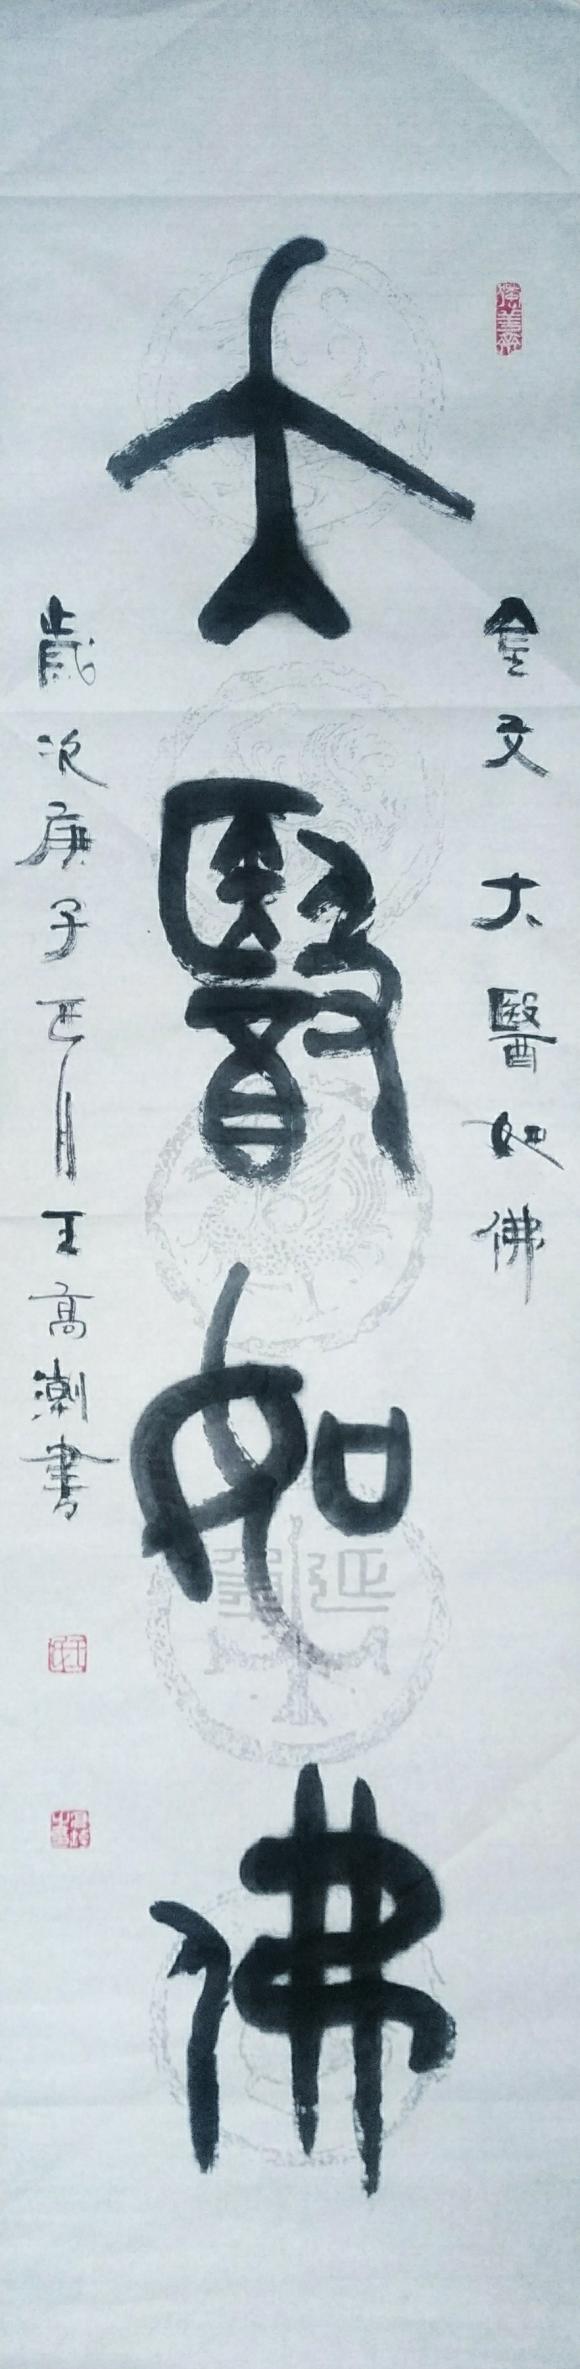 金文 大醫如佛
大醫如佛
歲次庚子正月王高潮書